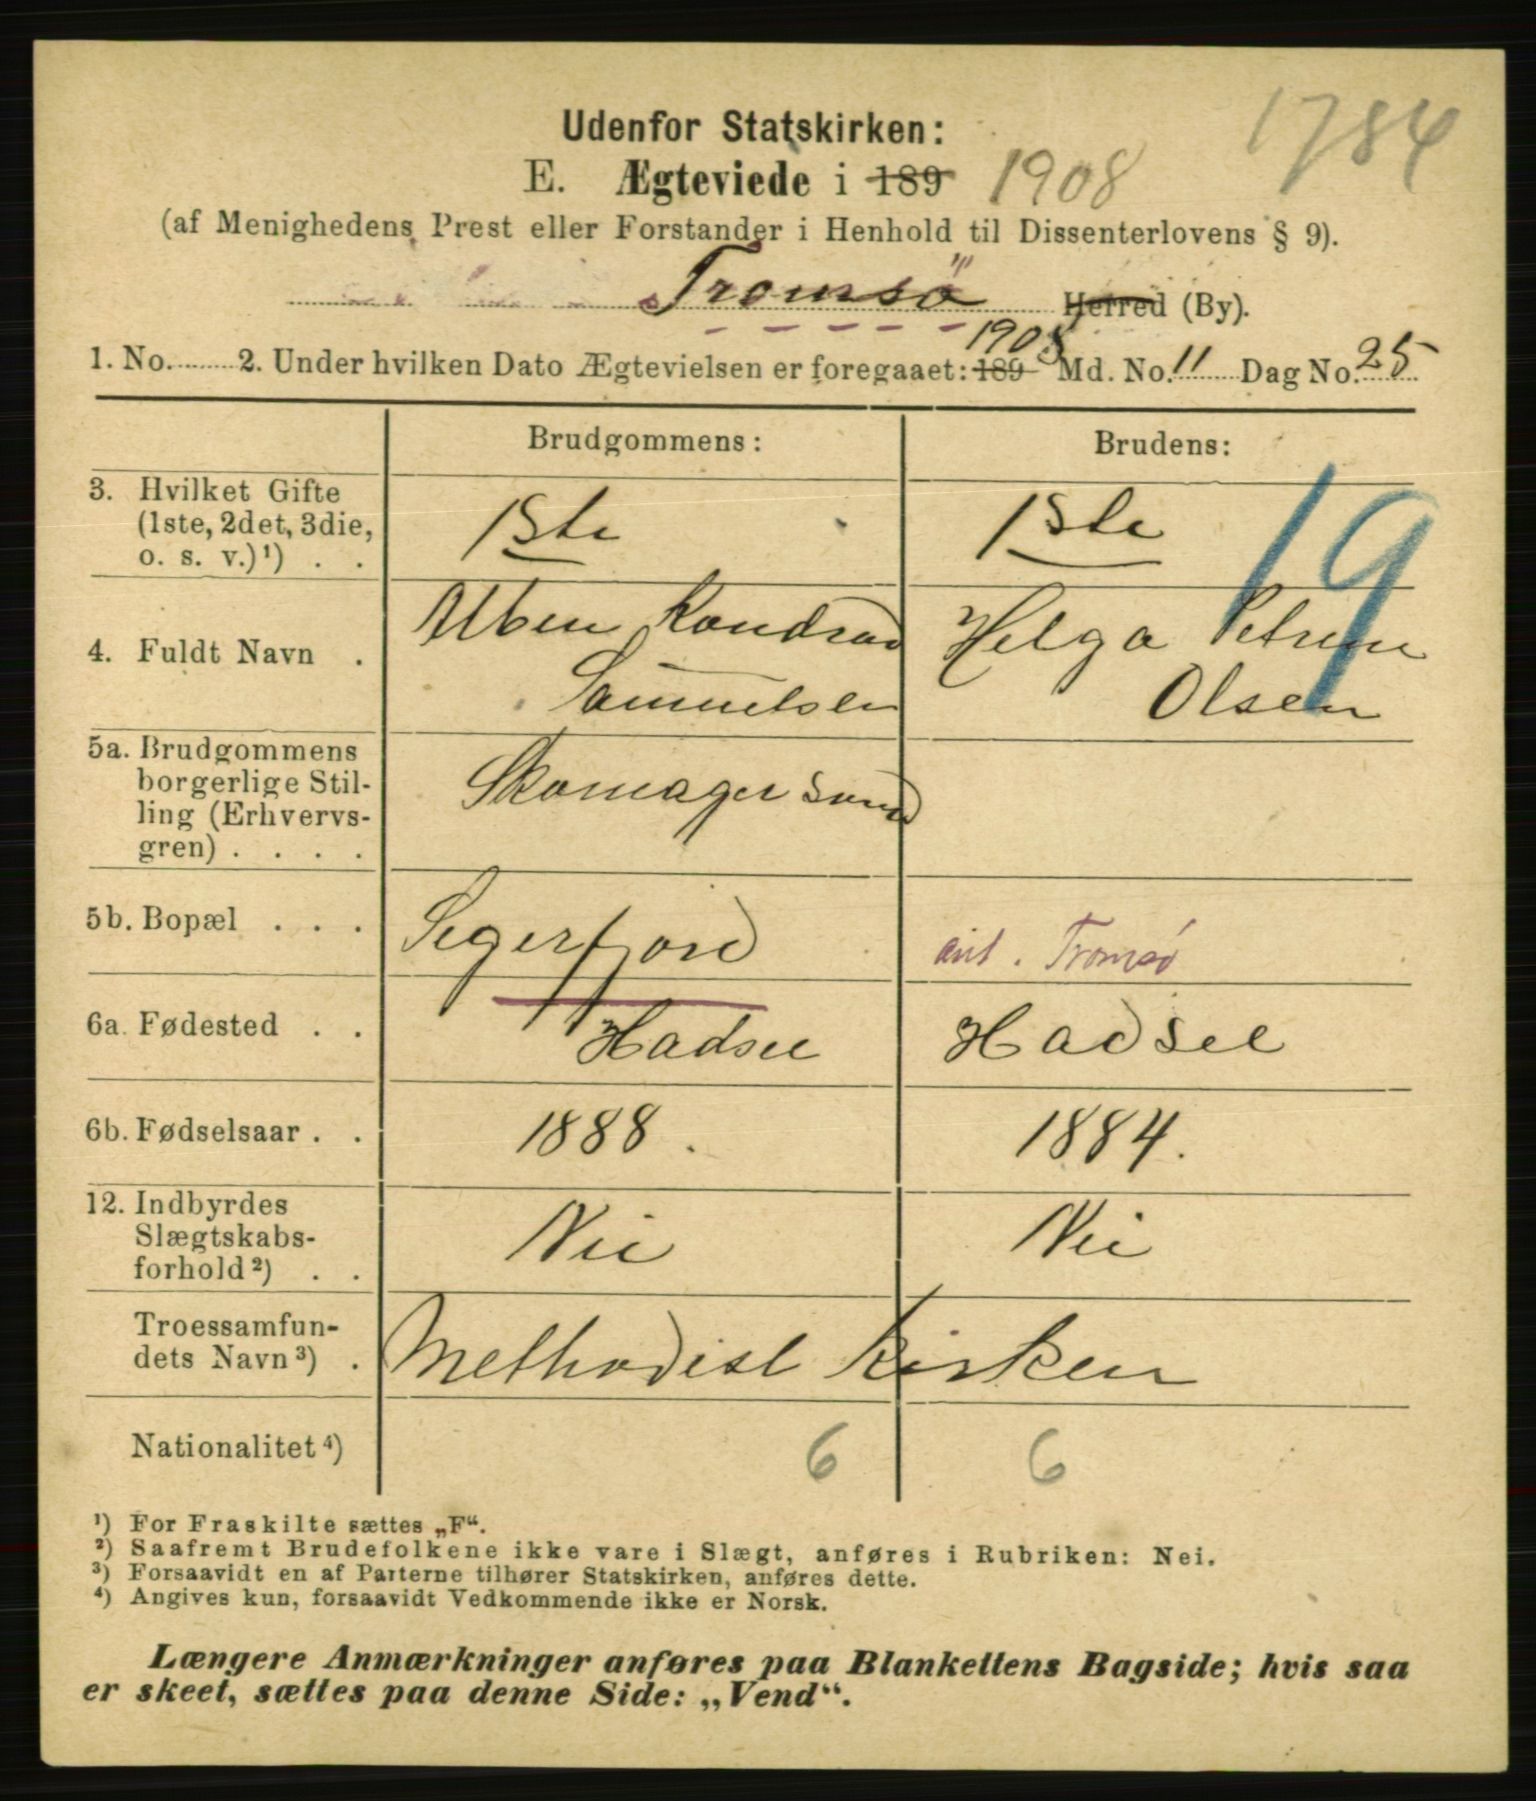 1784
Udenfor Statskirken:
E. Ægteviede i 189 1908
(af Menighedens Prest eller Forstander i Henhold til Dissenterlovens § 9).
Tromsø Herred (By).
1. No. 2. Under hvilken Dato Ægtevielsen er foregaaet: 189 1908 Md. No. 11 Dag No. 25
Brudgommens: Brudens:
3. Hvilket Gifte
(1ste, 2det, 3die,
o. s. v.)¹) . . 1ste 1ste
19
4. Fuldt Navn . Kondrad Helga Petrine
Samuelsen Olsen
5a. Brudgommens
borgerlige Stil-
ling (Erhvervs-
gren) . . . . Skomager svend
5b. Bopæl . . . Segerfjord ant. Tromsø
6a. Fødested . . Hadsel Hadsel
6b. Fødselsaar . . 1888. 1884.
12. Indbyrdes
Slægtskabs-
forhold²) . . Nei Nei
Troessamfun-
dets Navn³) . Methodist Kirken
Nationalitet⁴) 6 6
¹) For Fraskilte sættes „F“.
²) Saafremt Brudefolkene ikke vare i Slægt, anføres i Rubriken: Nei.
³) Forsaavidt en af Parterne tilhører Statskirken, anføres dette.
⁴) Angives kun, forsaavidt Vedkommende ikke er Norsk.
Længere Anmærkninger anføres paa Blankettens Bagside; hvis saa
er skeet, sættes paa denne Side: „Vend“.